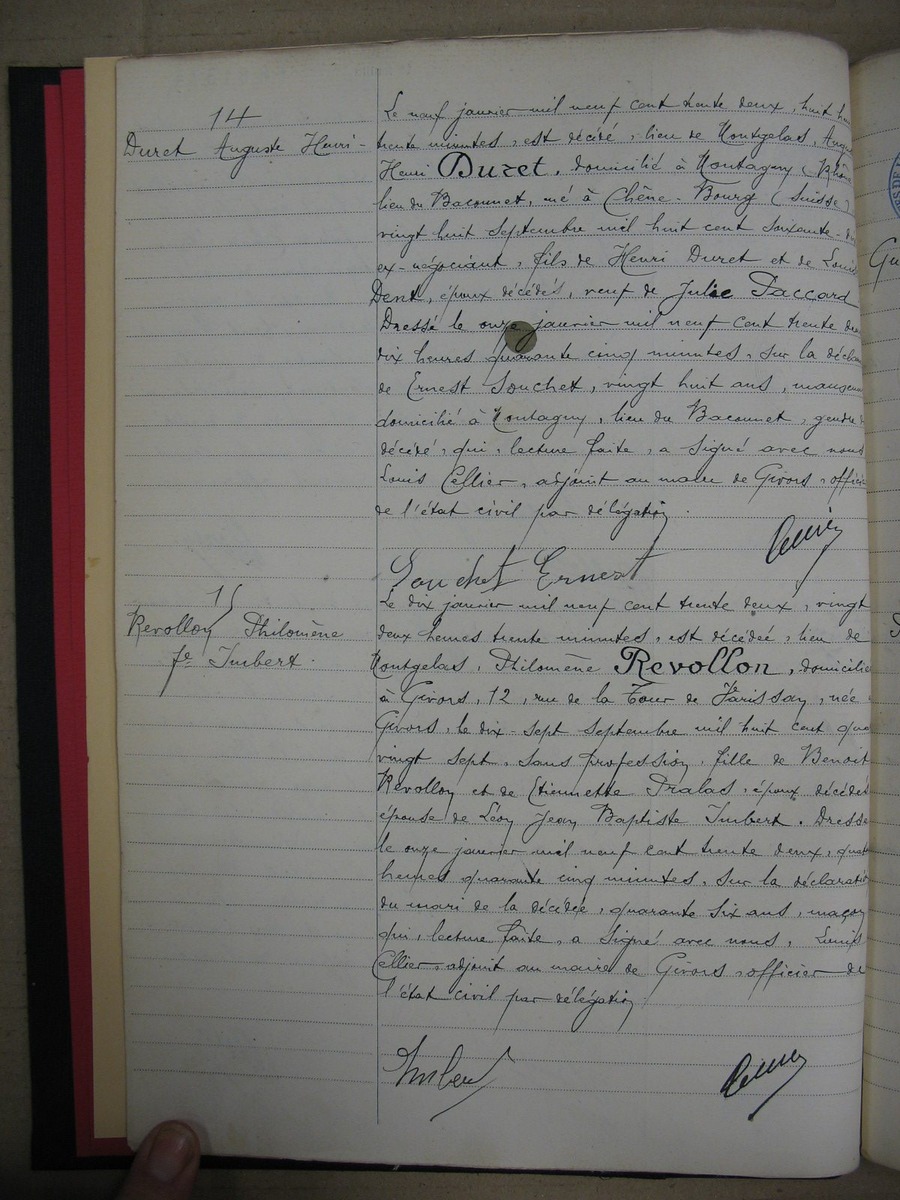 14
Duret Auguste Henri-
Le neuf janvier mil neuf cent trente deux, huit h
trente minutes, est décédé, lieu de Montgelas, Augus
Henri Duret, domicilié à Montagny (Rhône
lieu du Baconnet, né à Chêne-Bourg (Suisse)
vingt huit septembre mil huit cent soixante-di
ex-négociant, fils de Henri Duret et de Louis
Dent, époux décédés, veuf de Julie Paccard
Dressé le onze janvier mil neuf cent trente deu
dix heures quarante cinq minutes, sur la déclar
de Ernest Souchet, vingt huit ans,
domicilié à Montagny, lieu du Baconnet, gendre d
décédé, qui, lecture faite, a signé avec nous
Louis Cellier, adjoint au maire de Givors, offici
de l'état civil par délégation.
Souchet Ernest
15
Revollon Philomène
fe Imbert.
Le dix janvier mil neuf cent trente deux, vingt
deux heures trente minutes, est décédée, lieu de
Montgelas, Philomène Revollon, domicilie
à Givors, 12, rue de la Tour de Varissan, née
Givors, le dix-sept septembre mil huit cent qua
vingt sept, sans profession, fille de Benoit
Revollon et de Etiennette Pralas, époux décédés
épouse de Léon Jean Baptiste Imbert. Dressé
le onze janvier mil neuf cent trente deux, quat
heures quarante cinq minutes, sur la déclaratio
du mari de la décédée, quarante six ans, maçon
qui, lecture faite, a signé avec nous, Louis
Cellier, adjoint au maire de Givors, officier de
l'état civil par délégation
Imbert